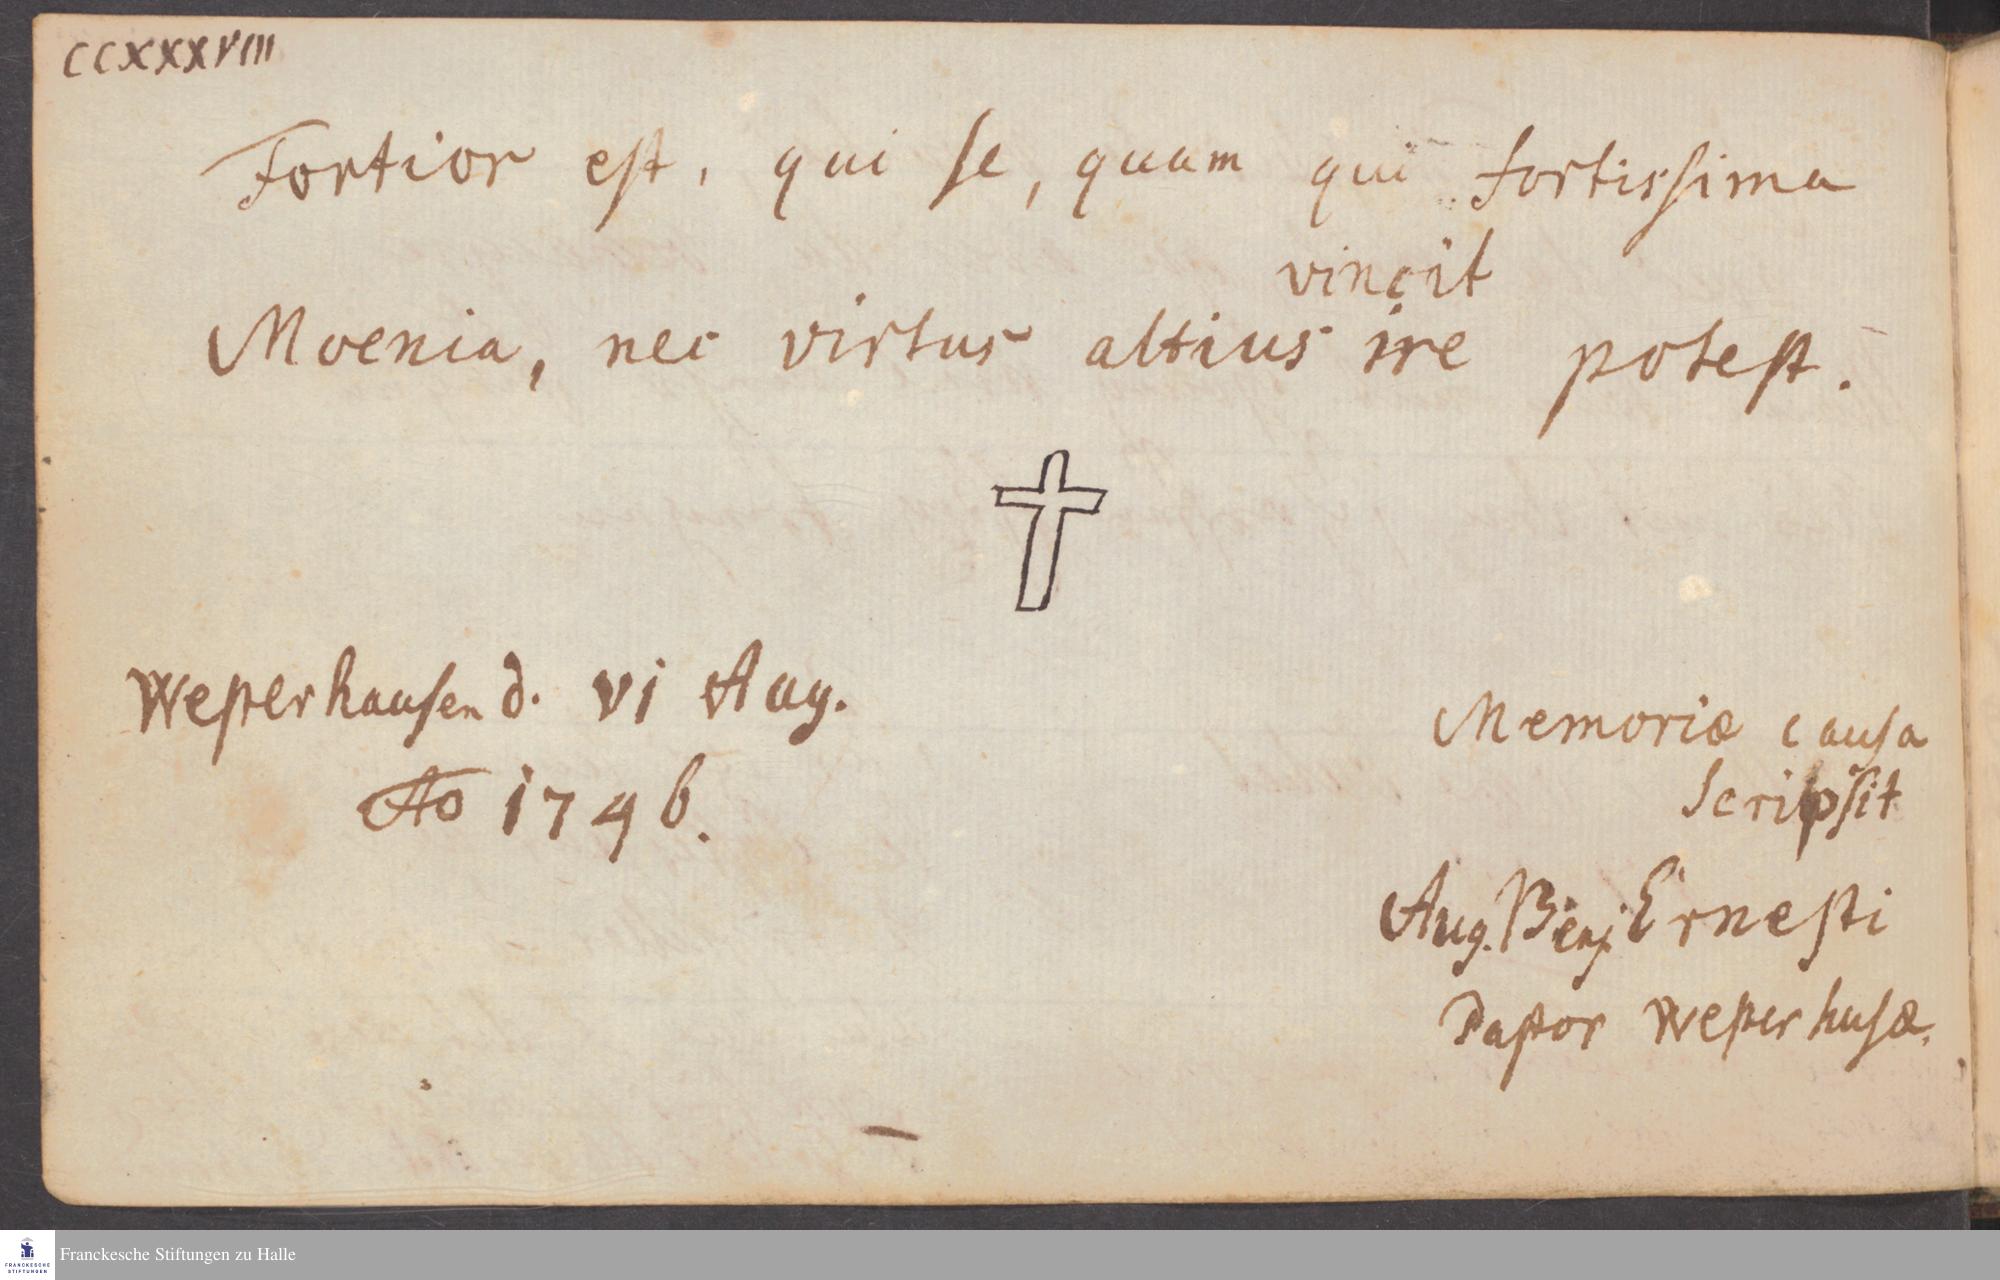 CCXXXVIII
Fortior est, qui se, quam qui fortissima
vincit
Moenia, nec virtus altius ire potest.
Westerhausen d. VI Aug.
Ao 1746.
Memoriæ causa
scripsit
Aug. Benj. Ernesti
Pastor Westerhusæ.
Franckesche Stiftungen zu Halle
FRANCKESCHE
STIFTUNGEN